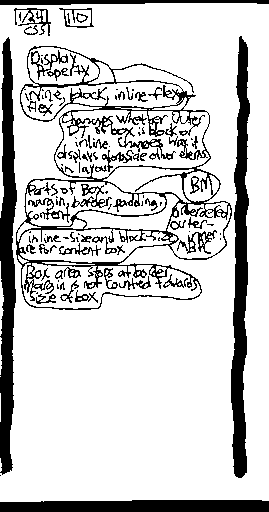 1/24 110
CSS
Display
Property
inline, block, inline-flex,
flex
Changes whether outer
DT of box is block or
inline. Changes was it
displays alongside other elems
in layout
Parts of Box: BM
margin, border, padding,
content
outer-
inner:
MBP
inline-size and block-size
are for content box
Box area stops at border
Margin is not counted towards
size of box